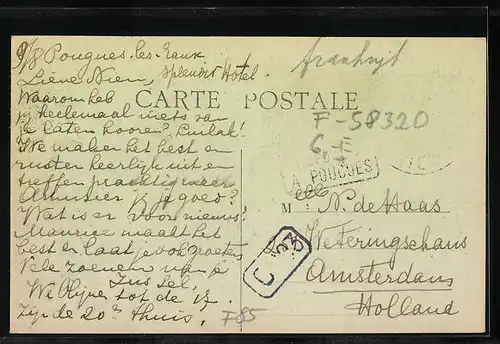 9/8 Pougues-les-Eaux
Splendid Hotel.
Lieve Niem,
Waarom heb
je heelemaal niets van
je laten hooren? Luilak!
We maken het best en
rusten heerlijk uit en
treffen prachtig weer
Amuseer jij je goed?
Wat is er voor nieuws?
Maurice maakt het
best en laat je ook groeten
Vele zoenen van je
Zus
We blijven tot de 15.
Zijn de 20ste thuis.
frankrijk
CARTE POSTALE
F-58320
A POUGUES
M N. de Haas
Weteringschans
Amsterdam
Holland
F85